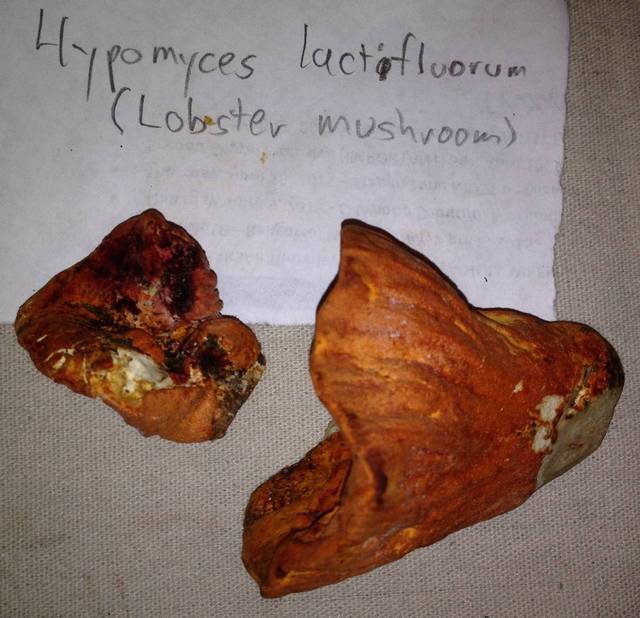 Hypomyces lactifluorum
(Lobster mushroom)